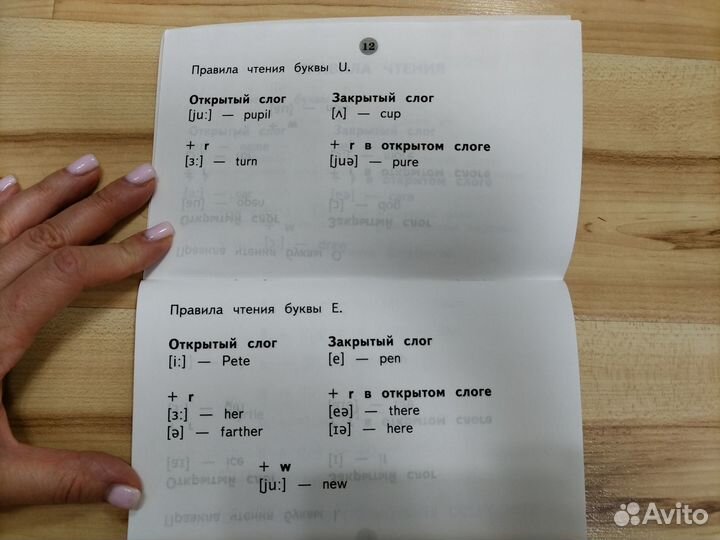 12
Правила чтения буквы U.
Открытый слог Закрытый слог
[ju:] — pupil [ʌ] — cup
+ r + r в открытом слоге
[ɜ:] — turn [juə] — pure
Правила чтения буквы E.
Открытый слог Закрытый слог
[i:] — Pete [e] — pen
+ r + r в открытом слоге
[ɜ:] — her [eə] — there
[ə] — farther [ɪə] — here
+ w
[ju:] — new
Avito